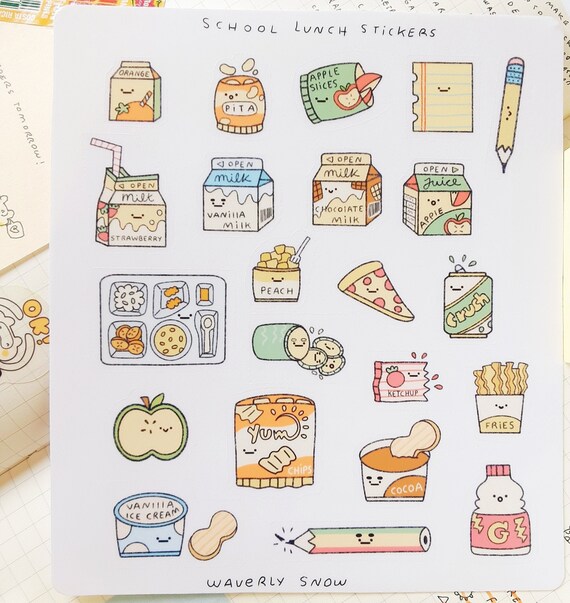 SCHOOL LUNCH STICKERS
ORANGE
PITA
APPLE
SLICES
OPEN
milk
STRAWBERRY
OPEN
milk
VANILLA
MILK
OPEN
milk
CHOCOLATE
MILK
OPEN
Juice
APPLE
PEACH
Crush
KETCHUP
FRIES
Yum
CHIPS
COCOA
VANILLA
ICE CREAM
G
WAVERLY SNOW
TOMORROW!